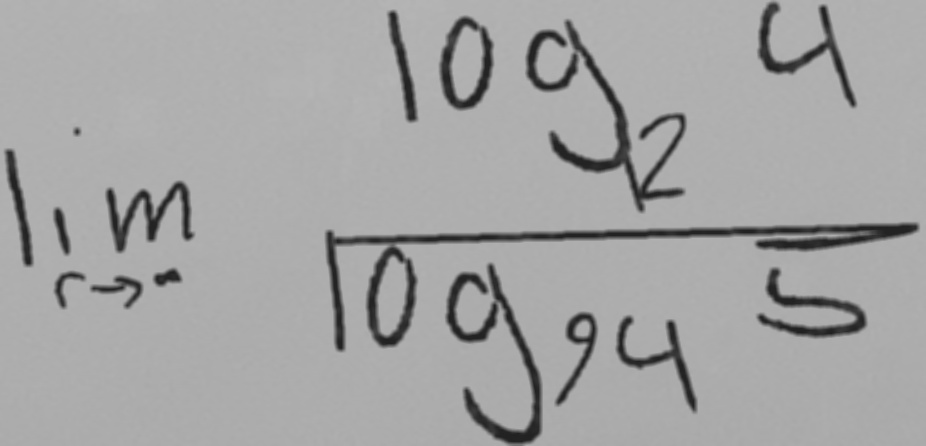 \lim_{r \to \infty} \frac{\log_{2} 4}{\log_{94} 5}